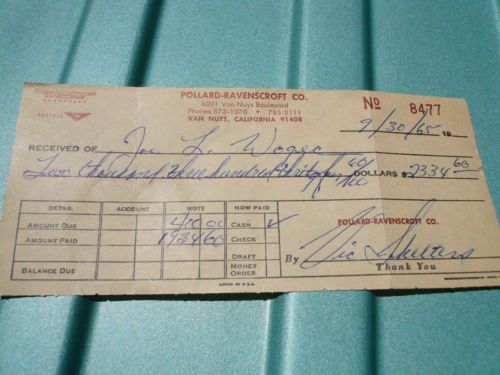 POLLARD-RAVENSCROFT CO.
6001 Van Nuys Boulevard
Phones 873-1070 • 785-2111
VAN NUYS, CALIFORNIA 91408
No 8477
9/30/65 19
RECEIVED OF Joe L.
Two thousand three hundred thirty four 60/100 DOLLARS $2334 60
DETAIL ACCOUNT NOTE HOW PAID
AMOUNT DUE 400 00 CASH ✓
AMOUNT PAID 1934 60 CHECK
DRAFT
BALANCE DUE MONEY ORDER
POLLARD-RAVENSCROFT CO.
By Vic Skelters
Thank You